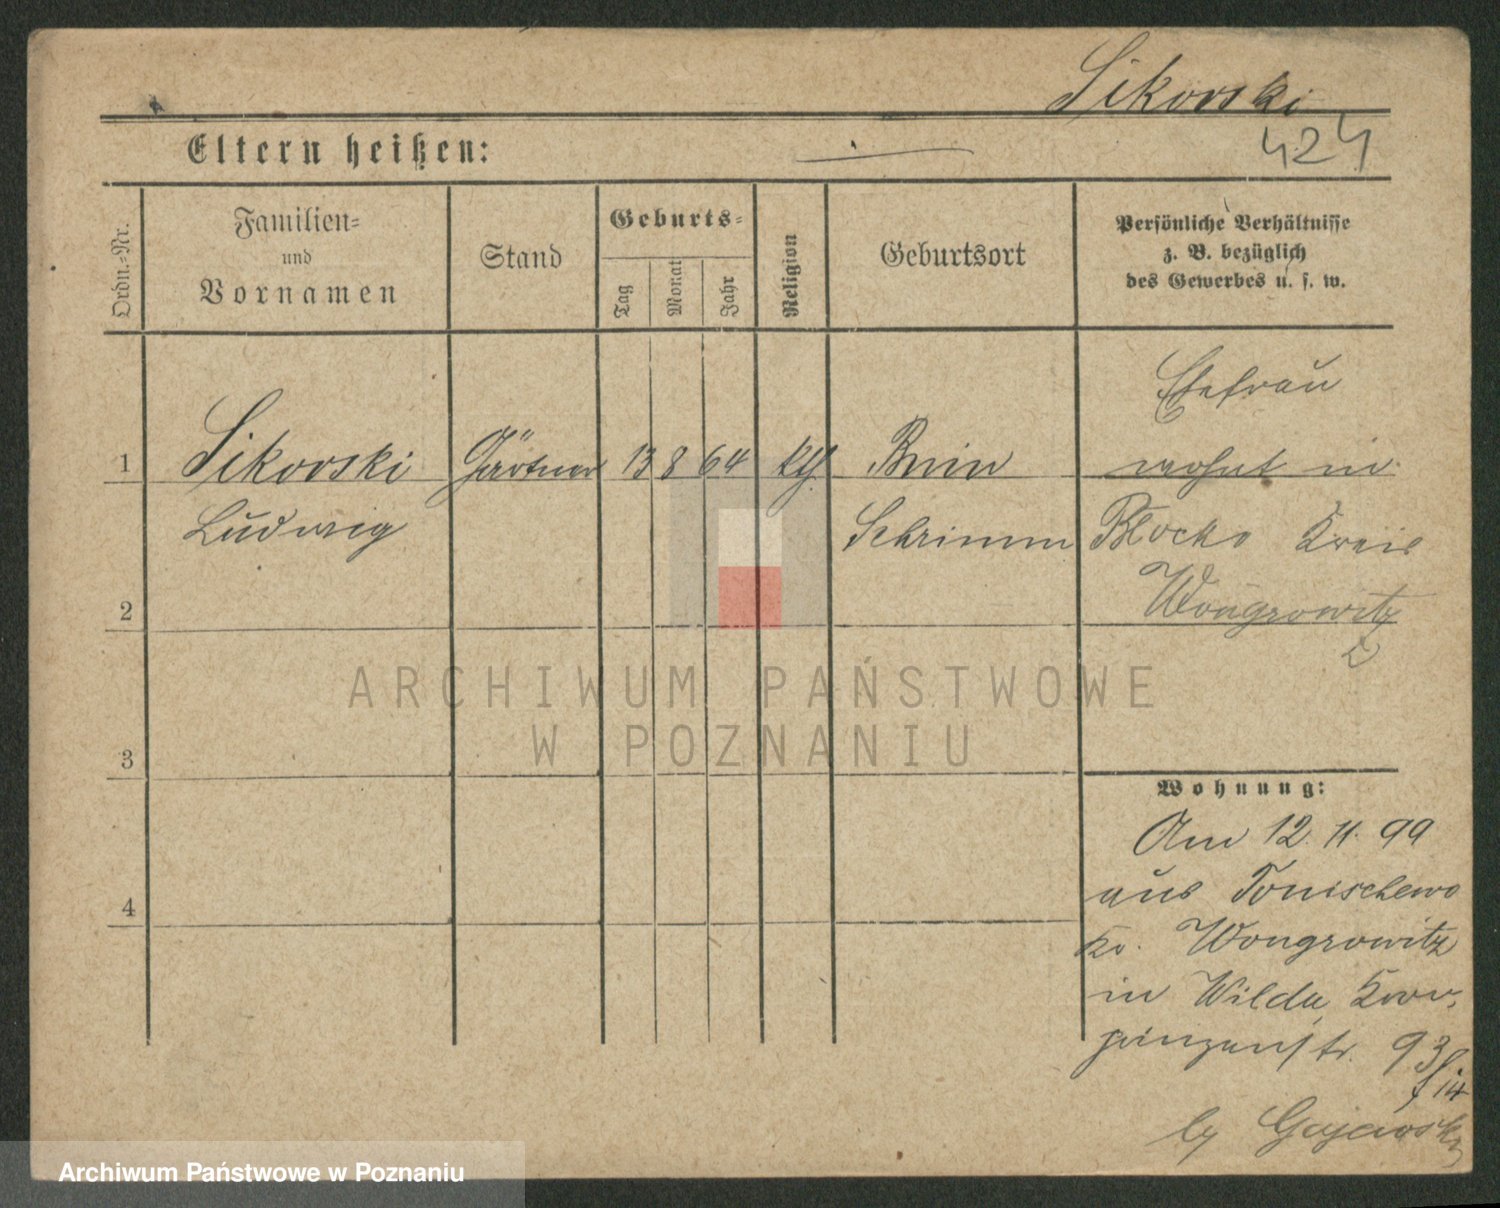 Sikorski
Eltern heißen: —·—
424
Ordn.-Nr.
Familien-
und
Vornamen
Stand
Geburts-
Tag
Monat
Jahr
Religion
Geburtsort
Persönliche Verhältnisse
z. B. bezüglich
des Gewerbes u. s. w.
Ehefrau
1 Sikorski Gärtner 13 8 64 kth Bnin wohnt in
Ludwig Schrimm Blocko Kreis
2 Wongrowitz
3
Wohnung:
Am 12. 11. 99
4 aus Tonischewo
Kr. Wongrowitz
in Wilda, Kron-
prinzenstr. 93
by Gajewski
ARCHIWUM PAŃSTWOWE
W POZNANIU
Archiwum Państwowe w Poznaniu